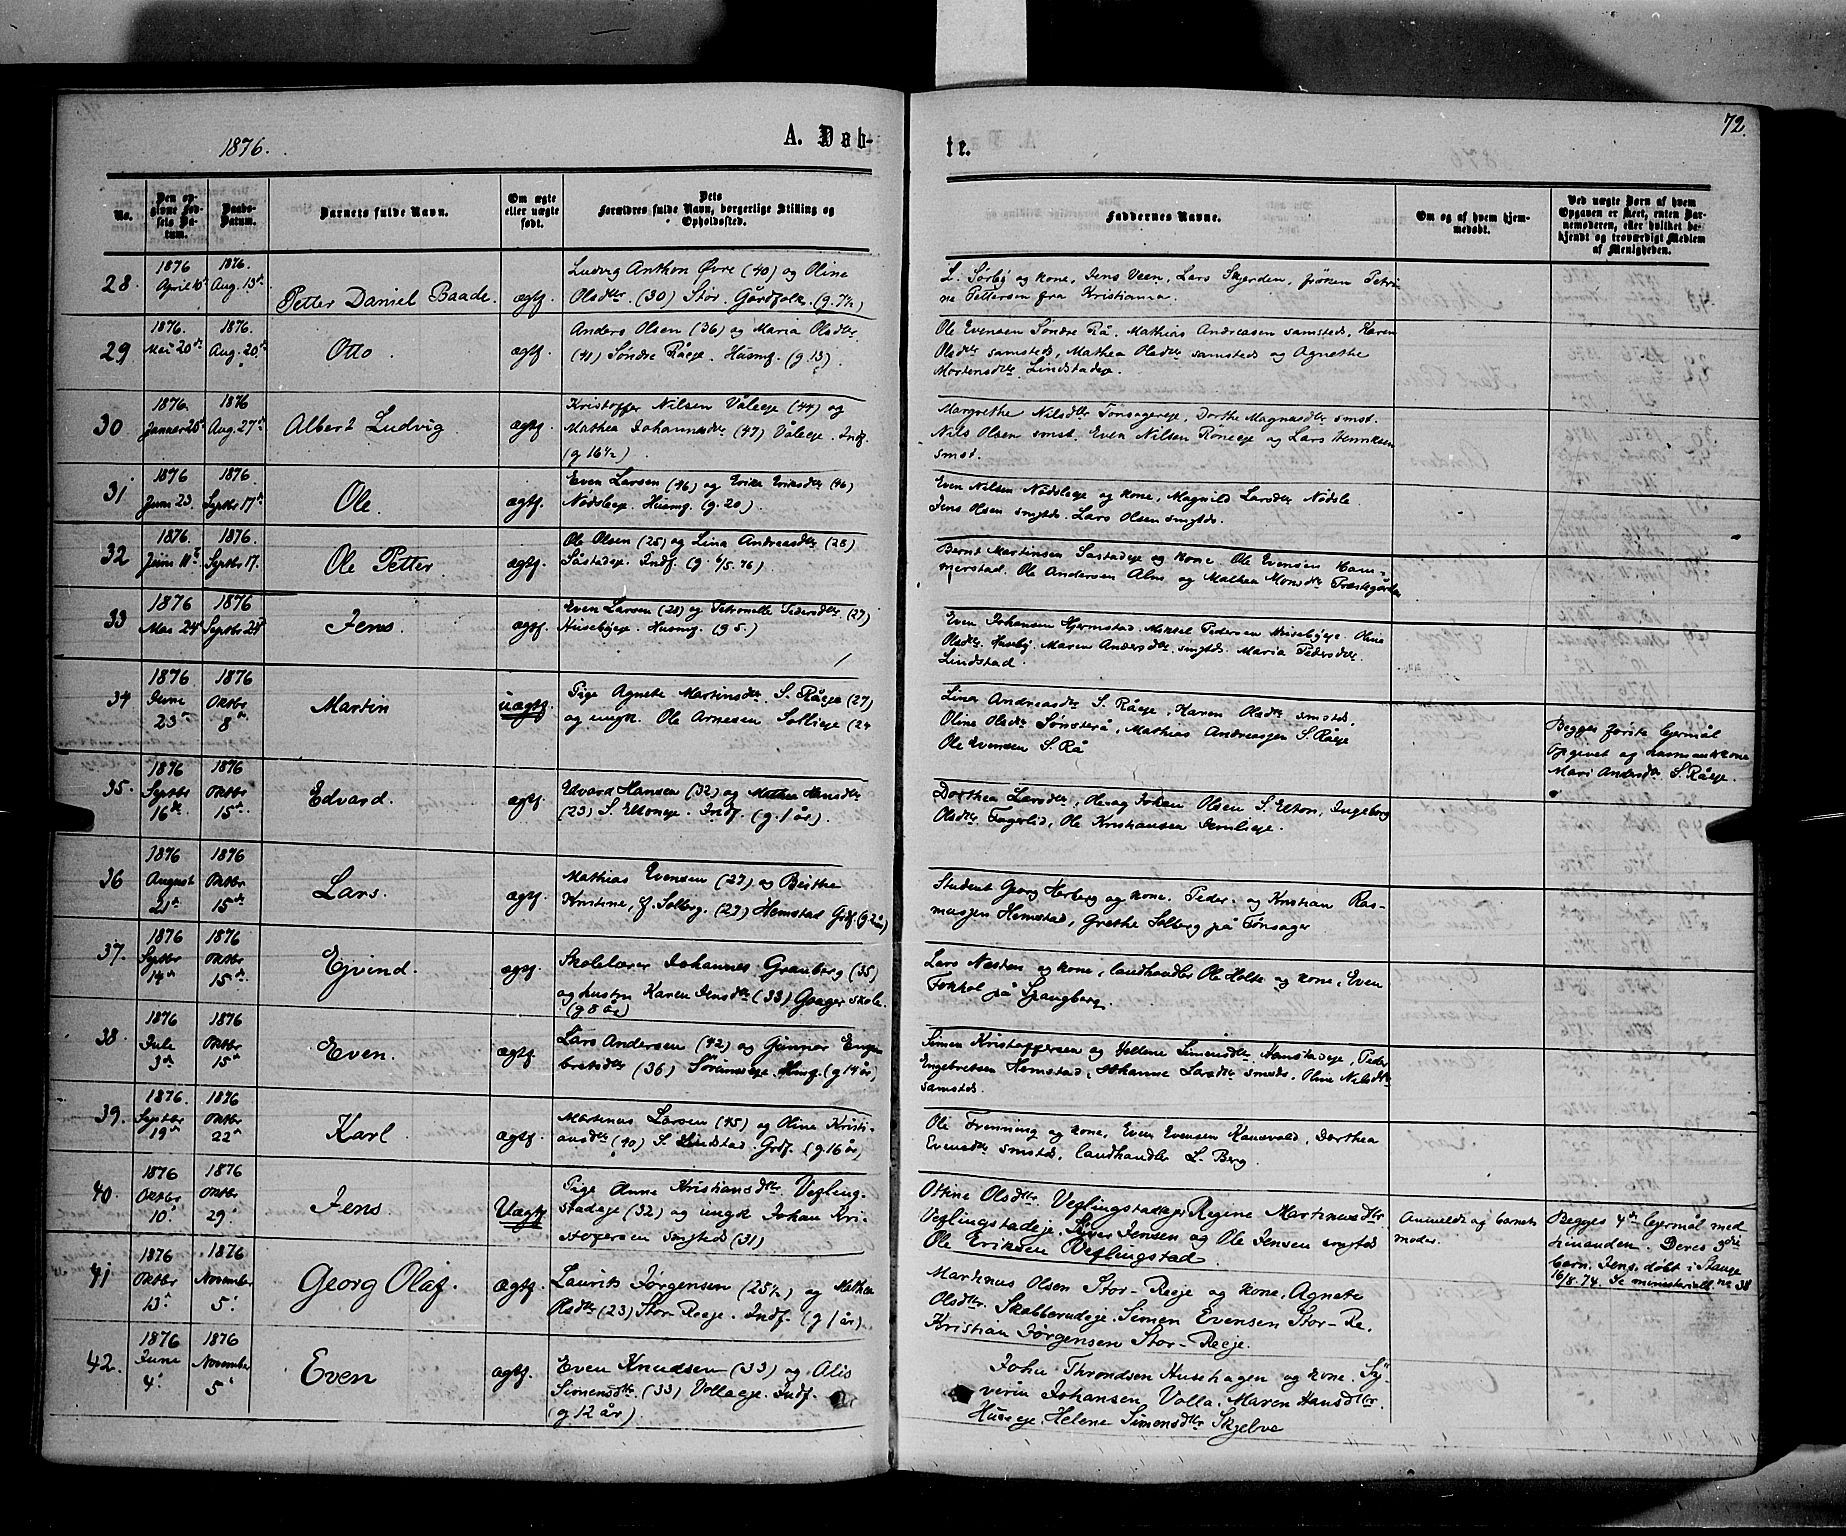 72.
1876.
A. Døb-
te.
No.
Den opgivne Fødsels Datum.
Daabs-Datum.
Barnets fulde Navn.
Om ægte eller uægte født.
Dets Forældres fulde Navn, borgerlige Stilling og Opholdssted.
Faddernes Navne.
Om og af hvem hjemmedøbt.
Ved uægte Born af hvem Opgaven er skeet, enten Barnemoderen, eller hvilket bekjendt og troværdigt Medlem af Menigheden.
28.
1876 April
1876. Aug. 13de
Petter Daniel Baade.
ægtf.
Ludvig Anthon Øvre (40) og Oline
Olsdtr. (30) Stor. Gårdfolk. (g. 7½)
L. Sørby og kone, Jens Veen, Lars Skjerden, frøken Petri-
ne Pettersen fra Kristiania.
29
1876. Mai 20de
1876. Aug. 20de
Otto.
ægtf.
Anders Olsen (36) og Maria Olsdtr.
(41) Søndre Råeje. Husmf. (g. 13)
Ole Evensen Søndre Rå, Mathias Andreasen samsteds, Karen
Olsdtr samsteds, Mathea Olsdtr samsteds og Agnethe
Mortensdtr. Lindstadeje.
30
1876. Januar 26de
1876 Aug. 27de
Albert Ludvig
ægtf.
Kristoffer Nilsen Våleeje (44) og
Mathea Johannesdtr (47) Våleeje. Indf.
(g 16½)
Margrethe Nilsdtr Tønsagereje, Dorthe Magnusdtr smst.
Nils Olsen smst. Even Nilsen Røneeje og Lars Henriksen
smst.
31
1876 Juni 23.
1876 Septbr 17de
Ole.
ægtf.
Even Larsen (46) og Erika Eriksdtr (46)
Nødsleeje. Husmf. (g. 20).
Even Nilsen Nødsleeje og kone, Magnild Larsdtr Nødsle
Jens Olsen smstds. Lars Olsen smstds.
32
1876. Juni 11te
1876. Septbr 17.
Ole Petter.
ægtf.
Ole Olsen (25) og Lina Andreasdtr (28)
Såstadeje. Indf. (g. 6/5. 76)
Bernt Martinsen Sastadeje og kone Ole Evensen Ham-
merstad. Ole Andersen Alm og Mathea Monsdtr Præstegården
33
1876 Mai 24de
1876 Septbr 24de
Jens.
ægtf.
Even Larsen (28) og Petronelle Pedersdtr (27)
Husebyeje. Husmf. (g 5.)
Even Johansen Hjermstad. Mikkel Pedersen Husebyeje. Oline
Olsdtr. Huseby. Maren Andersdtr. smstds. Maria Pedersdtr.
Lindstad.
34
1876 Juni 23de
1876 Oktbr 8de
Martin
uægtf.
Pige Agnete Martinsdtr. S. Råeje (27)
og ungk. Ole Arnesen Sollieje (24
Lina Andreasdtr S. Råeje, Karen Olsdtr smstds.
Oline Olsdtr Sønsterå, Mathias Andreasjen S. Råeje
Ole Evensen S. Rå
Begges første Lejermål
Opgivet og husmandskone
Mari Andersdtr S. Råeje.
35.
1876 Septbr 16de
1876 Oktbr 15de
Edvard.
ægtf.
Edvard Hansen (32) og Mathea Hansdtr
(23) S. Eltoneje. Indf. (g. 1 år).
Dorthea Larsdtr, Ole og Johan Olsen S. Elton, Ingeborg
Olsdtr Fagerlid, Ole Kristiansen
36
1876 August 21de
1876 Oktbr 15de
Lars.
ægtf.
Mathias Evensen (27) og Berthe
Kristine, f. Solberg. (27) Hemstad Grdf (g 2 år)
Student Georg Herberg og kone. Peder og Kristian Ras-
musjen Hemstad, Grethe Solberg på Tønsager
37.
1876 Septbr 14de
1876 Oktbr 15de
Ejvind.
ægtf.
Skolelærer Johannes Granberg (35)
og hustru Karen Jensdtr (33) Gaager skole.
(g 8 år)
Lars Næsten og kone, landhandler Ole Holte og kone, Even
Fokhol på Spangberg.
38.
1876 Juli 3de
1876 Oktbr 15de
Even.
ægtf.
Lars Andersen (42) og Gunnor Enge-
bretsdtr (36) Husmf. (g 14 år)
Simen Kristoffersen og Hellene Simensdtr Hemstadeje, Peder
Engebretsen Hemstad, Johanne Larsdtr smsds. Oline Nilsdtr
samstds.
39.
1876. Septbr 19de
1876 Oktbr 22de
Karl.
ægtf.
Martinus Larsen (45) og Oline Kristi-
ansdtr (40) S. Lindstad. Grdf. (g 16 år)
Ole Frenning og kone. Even Evensen Kausvold, Dorthea
Evensdtr smstds, landhandler L. Berg.
40.
1876 Oktbr 10.
1876 Oktbr 29.
Jens
Uægtf
Pige Anne Kristiansdtr Veflings-
stadeje (32) og ungk Johan Kri-
stofersen smsteds (31)
Ottine Olsdtr. Veflingstadeje, Regine Martinusdtr.
Veflingstadeje. Siver Jensen og Ole Jensen smstds
Ole Eriksen Veflingstad.
Anmeldt og barnets
moder.
Begges 4de Lejermål med
hinanden. Deres 3die
barn. Jens. døbt i Stange
16/8. 74. Se ministerialb. no 38
41
1876 Oktbr 13de
1876 November 5.
Georg Olaf.
ægtf.
Laurits Jørgensen (25½) og Mathea
Olsdtr (23) Stor-Reeje. Indf. (g 1 år)
Martinus Olsen Stor-Reeje og kone, Agnete
Olsdtr. Skabberudeje. Simen Evensen Stor-Re.
Kristian Jørgensen Stor-Reeje.
42.
1876 Juni 4.
1876 November 5
Even
ægtf.
Even Knudsen (33) og Alis
Simensdtr (33) Vollaeje. Indf.
(g 12 år)
John Throndsen Husehagen og kone. Sy-
verin Johansen Volla. Maren Hansdtr.
Huseeje. Helene Simensdtr Skjelve